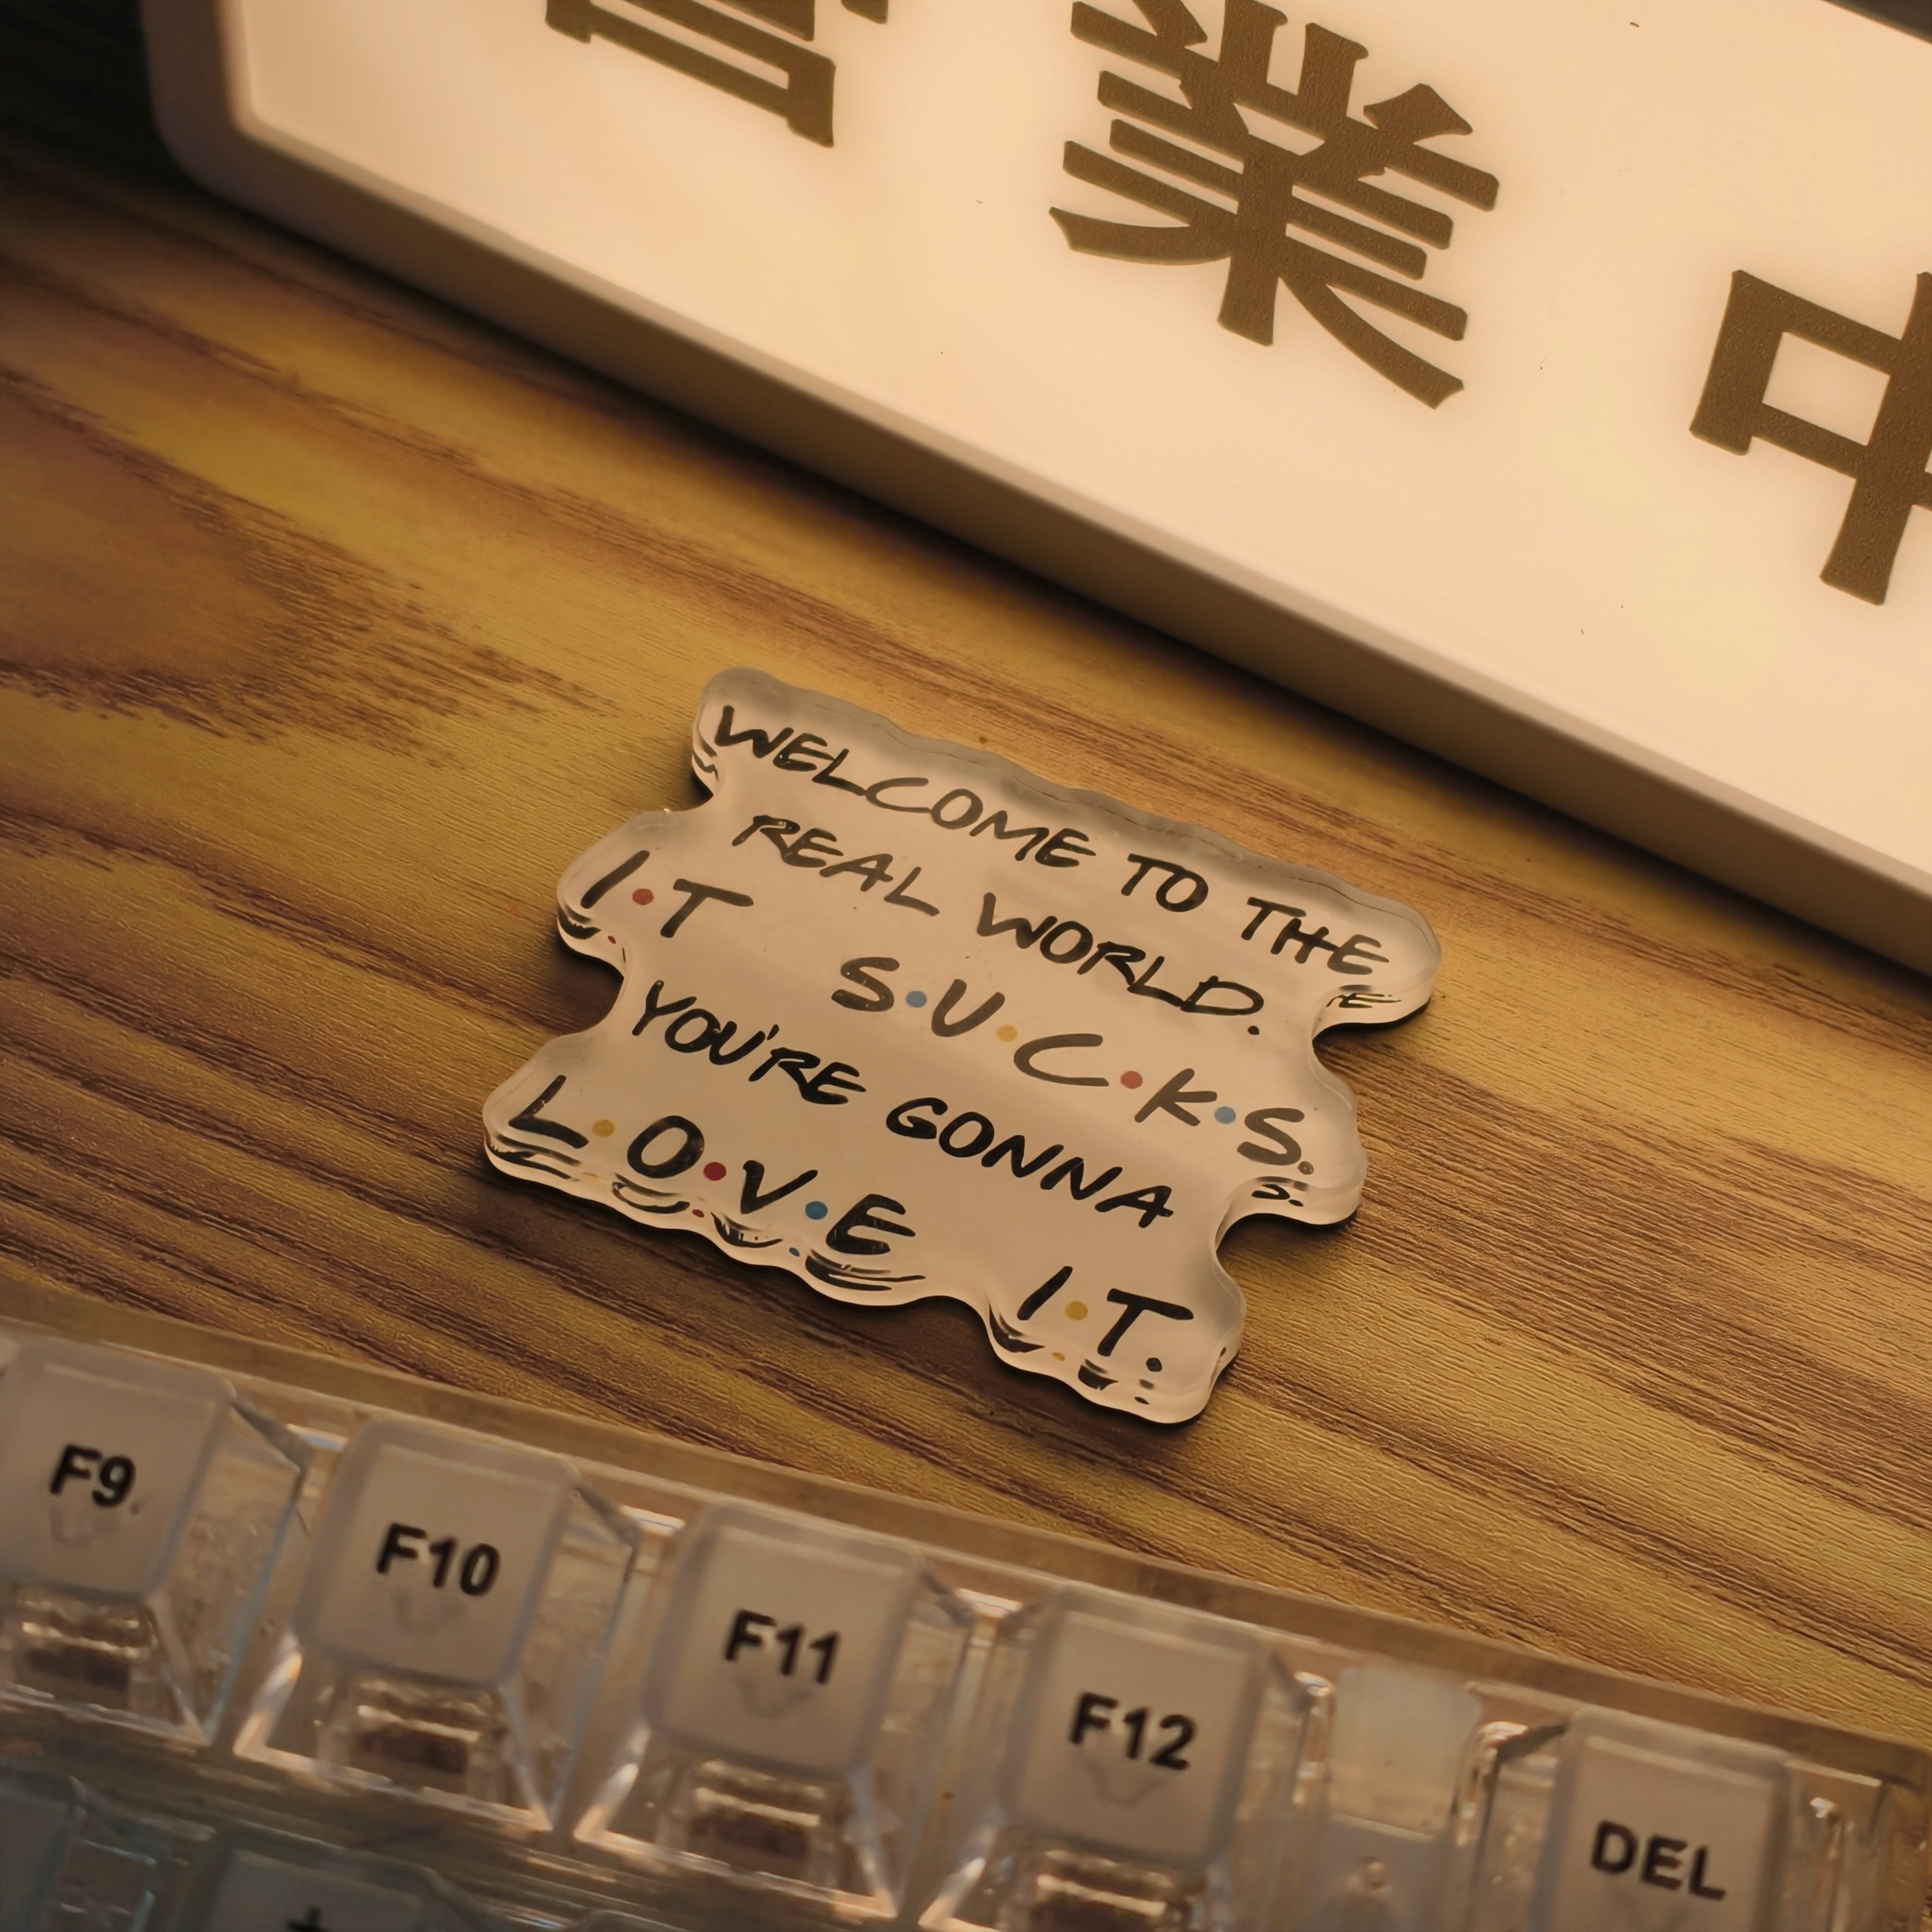 営業中
WELCOME TO THE
REAL WORLD.
I•T S•U•C•K•S.
YOU'RE GONNA
L•O•V•E I•T.
F9 F10 F11 F12 DEL